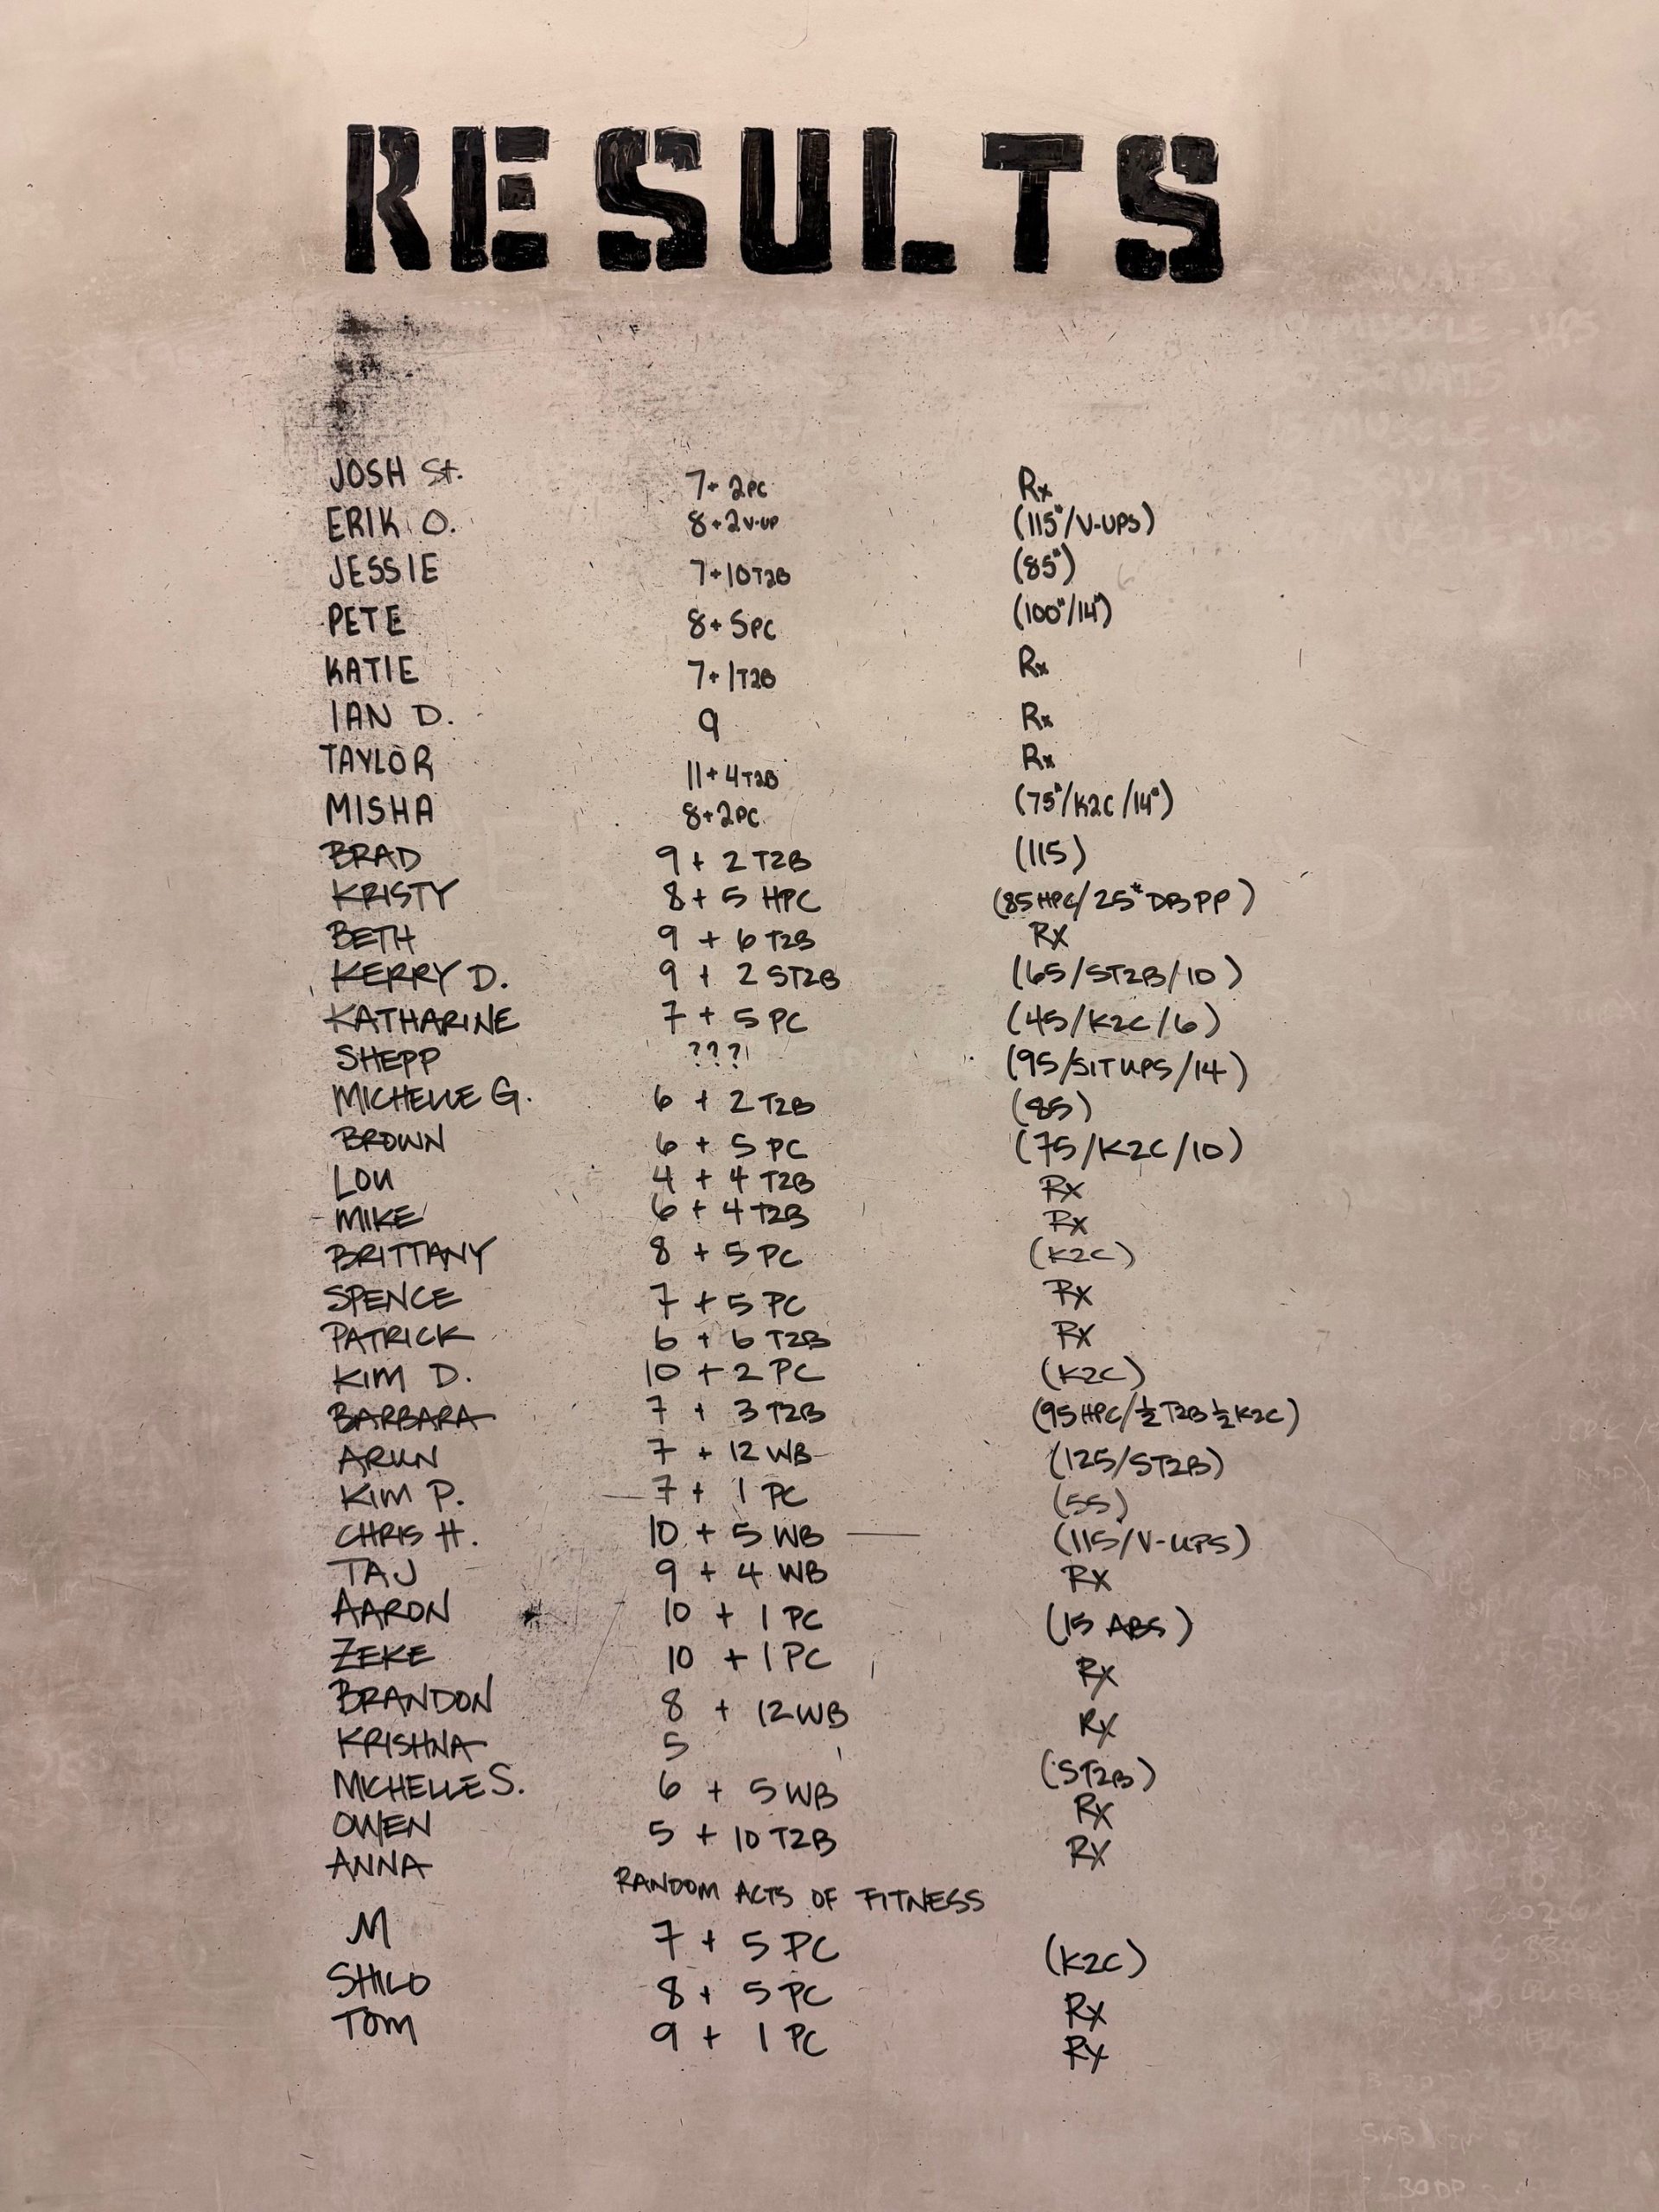 RESULTS
JOSH St. 7+2PC Rx
ERIK O. 8+2V-UP (115#/V-UPS)
JESSIE 7+10T2B (85#)
PETE 8+5PC (100#/14#)
KATIE 7+1T2B Rx
IAN D. 9 Rx
TAYLOR 11+4T2B Rx
MISHA 8+2PC (75#/K2C/14#)
BRAD 9 + 2 T2B (115)
KRISTY 8 + 5 HPC (85HPC/25# DB PP)
BETH 9 + 6 T2B Rx
KERRY D. 9 + 2 ST2B (65/ST2B/10)
KATHARINE 7 + 5 PC (45/K2C/6)
SHEPP ??? (95/SITUPS/14)
MICHELLE G. 6 + 2 T2B (85)
BROWN 6 + 5 PC (75/K2C/10)
LOU 4 + 4 T2B Rx
MIKE 6 + 4 T2B Rx
BRITTANY 8 + 5 PC (K2C)
SPENCE 7 + 5 PC Rx
PATRICK 6 + 6 T2B Rx
KIM D. 10 + 2 PC (K2C)
BARBARA 7 + 3 T2B (95HPC/½ T2B ½ K2C)
ARUN 7 + 12 WB (125/ST2B)
KIM P. 7 + 1 PC (55)
CHRIS H. 10 + 5 WB (115/V-UPS)
TAJ 9 + 4 WB Rx
AARON 10 + 1 PC (15 ABS)
ZEKE 10 + 1 PC Rx
BRANDON 8 + 12 WB Rx
KRISHNA 5 (ST2B)
MICHELLE S. 6 + 5 WB Rx
OWEN 5 + 10 T2B Rx
ANNA RANDOM ACTS OF FITNESS
M 7 + 5 PC (K2C)
SHILO 8 + 5 PC Rx
TOM 9 + 1 PC Rx
MUSCLE UPS